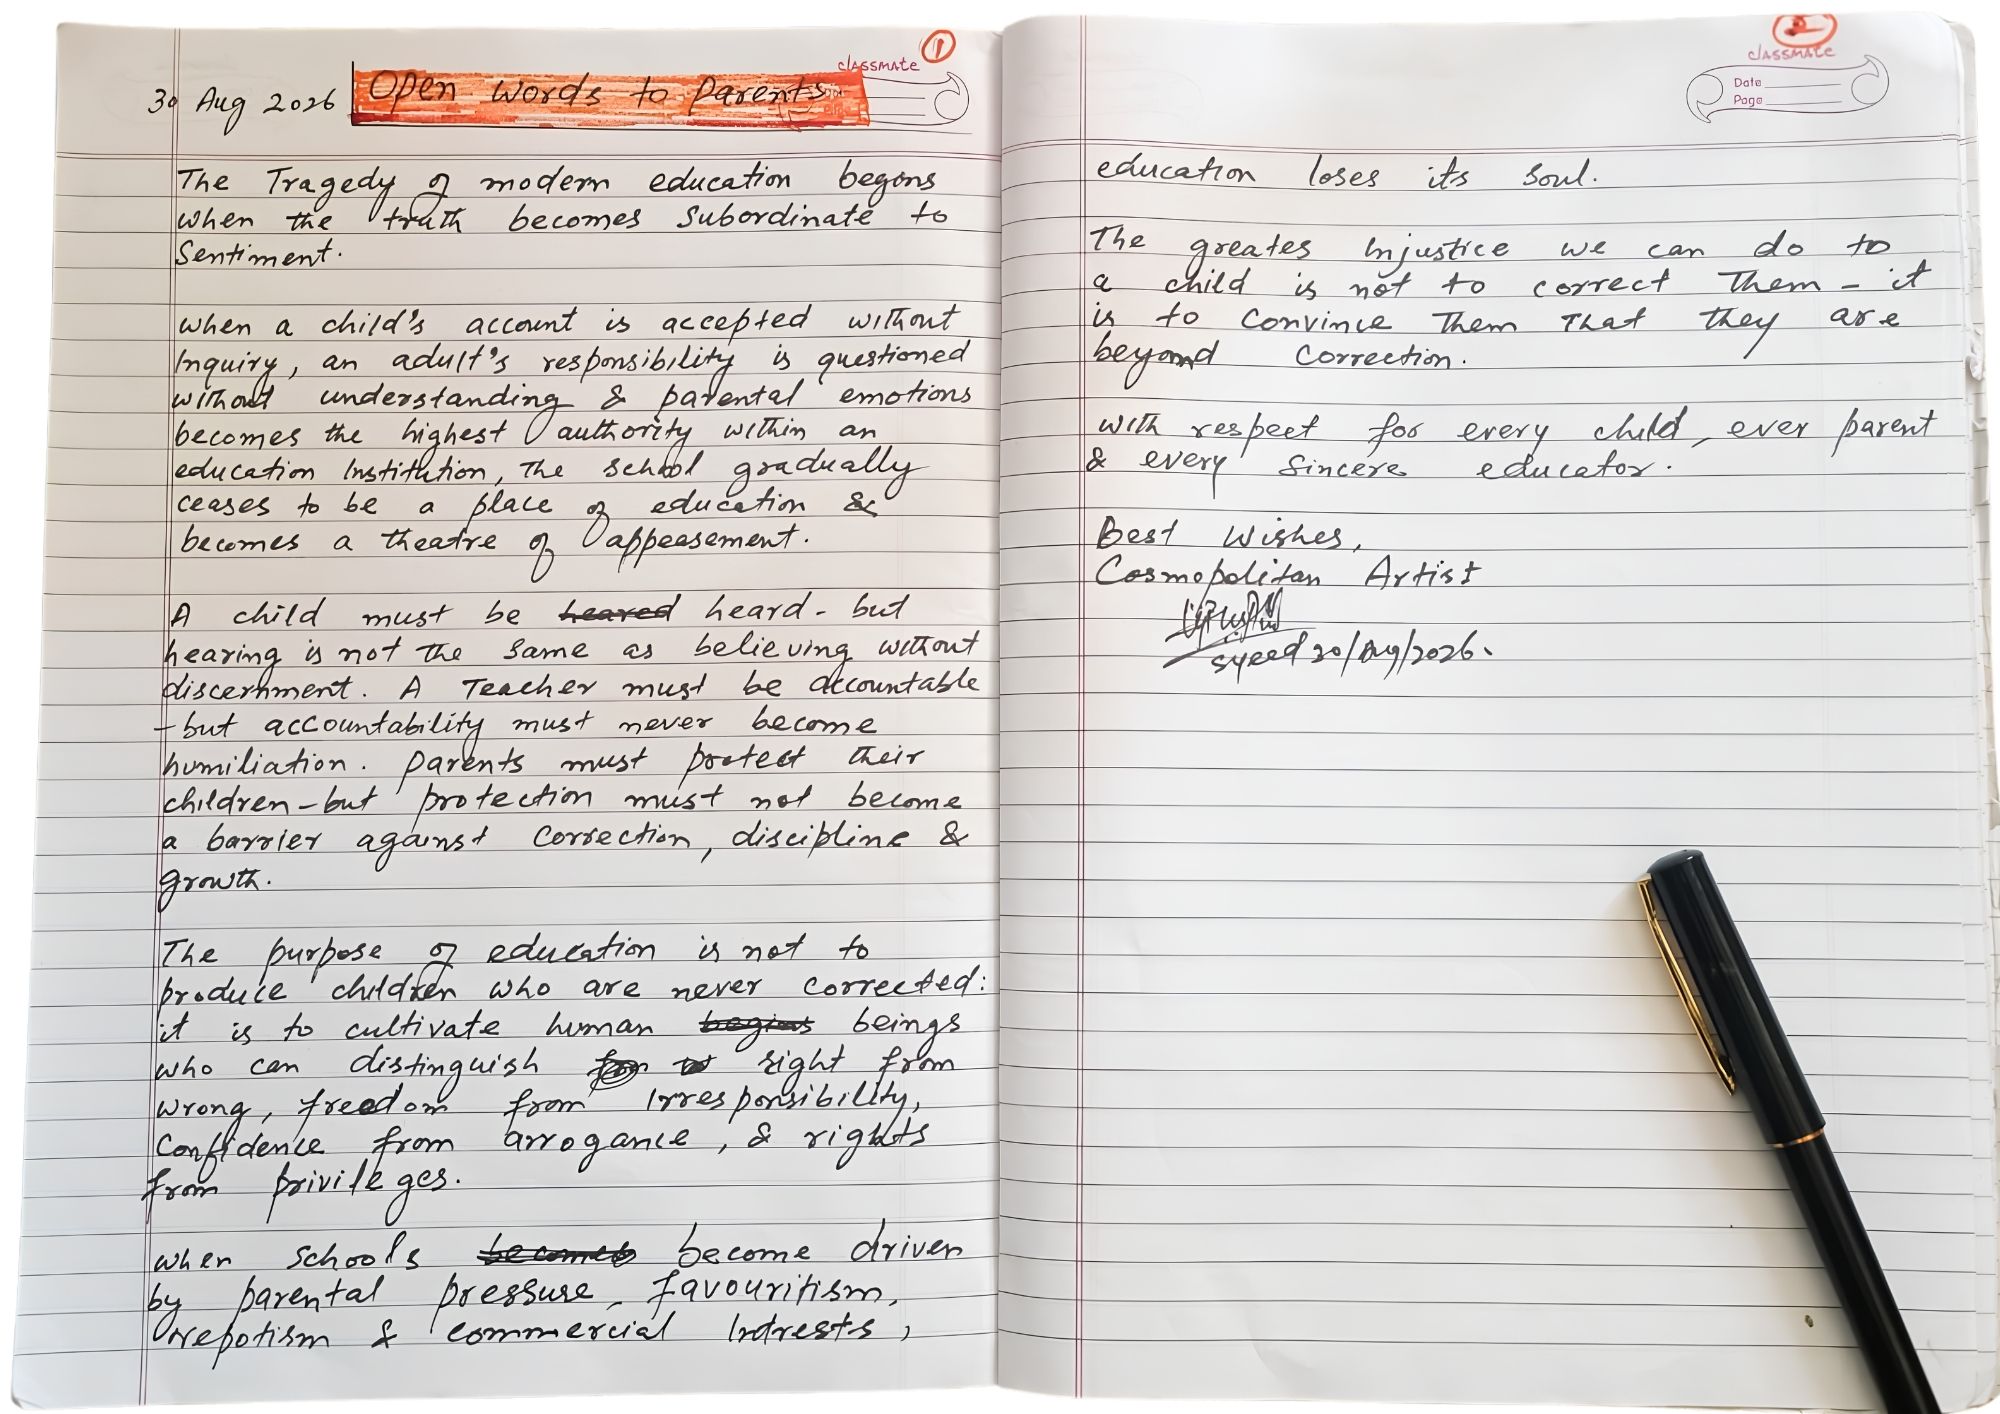 classmate
1
30 Aug 2026
Open words to parents
The Tragedy of modern education begons
when the truth becomes subordinate to
Sentiment.
when a child's account is accepted without
Inquiry, an adult's responsibility is questioned
without understanding & parental emotions
becomes the highest authority within an
education Institution, The school gradually
ceases to be a place of education &
becomes a theatre of appeasement.
A child must be heared heard - but
hearing is not the same as believing without
discernment. A Teacher must be accountable
- but accountability must never become
humiliation. parents must protect their
children - but protection must not become
a barrier against correction, discipline &
growth.
The purpose of education is not to
produce children who are never corrected:
it is to cultivate human begins beings
who can distinguish right from
wrong, freedom from Irresponsibility,
Confidence from arrogance, & rights
from privileges.
when schools becomes become driven
by parental pressure, favouritism,
nepotism & commercial Intrests,
2
classmate
Date
Page
education loses its soul.
The greates Injustice we can do to
a child is not to correct them - it
is to convince them that they are
beyond correction.
with respect for every child, ever parent
& every sincere educator.
Best Wishes,
Cosmopolitan Artist
syeed 30/Aug/2026.